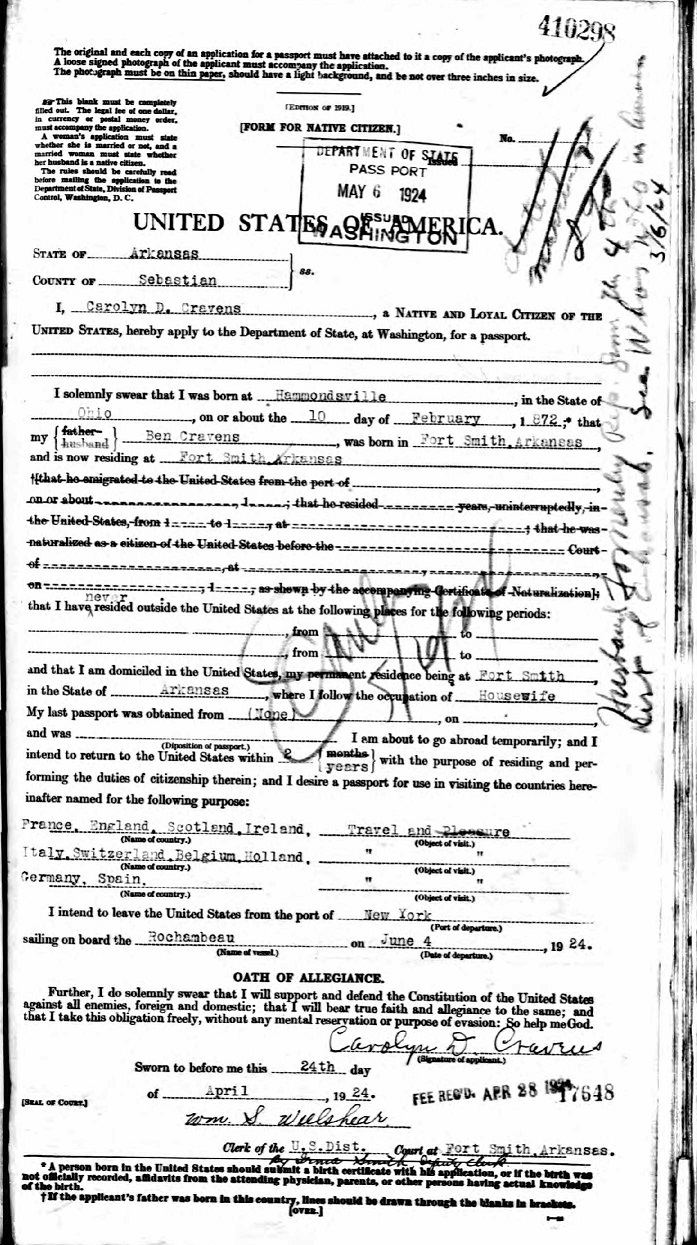 410298
The original and each copy of an application for a passport must have attached to it a copy of the applicant's photograph.
A loose signed photograph of the applicant must accompany the application.
The photograph must be on thin paper, should have a light background, and be not over three inches in size.
☞ This blank must be completely
filled out. The legal fee of one dollar,
in currency or postal money order,
must accompany the application.
A woman's application must state
whether she is married or not, and a
married woman must state whether
her husband is a native citizen.
The rules should be carefully read
before mailing the application to the
Department of State, Division of Passport
Control, Washington, D. C.
[EDITION OF 1919.]
[FORM FOR NATIVE CITIZEN.]
No.
DEPARTMENT OF STATE
PASSPORT
MAY 6 1924
ISSUED
WASHINGTON
UNITED STATES OF AMERICA.
STATE OF Arkansas
COUNTY OF Sebastian
ss.
I, Carolyn D. Cravens, a NATIVE AND LOYAL CITIZEN OF THE
UNITED STATES, hereby apply to the Department of State, at Washington, for a passport.
I solemnly swear that I was born at Hammondsville, in the State of
Ohio, on or about the 10 day of February, 1 872;* that
my {father husband} Ben Cravens, was born in Fort Smith,Arkansas,
and is now residing at Fort Smith,Arkansas
†[that he emigrated to the United States from the port of
on or about , 1 ; that he resided years, uninterruptedly, in
the United States, from 1 to 1 , at ; that he was
naturalized as a citizen of the United States before the Court
of , at ,
on , 1 , as shown by the accompanying Certificate of Naturalization];
never
that I have resided outside the United States at the following places for the following periods:
, from to
, from to
and that I am domiciled in the United States, my permanent residence being at Fort Smith,
in the State of Arkansas, where I follow the occupation of Housewife
My last passport was obtained from (None), on ,
and was I am about to go abroad temporarily; and I
(Diposition of passport.)
intend to return to the United States within 2 {months years} with the purpose of residing and per-
forming the duties of citizenship therein; and I desire a passport for use in visiting the countries here-
inafter named for the following purpose:
France, England, Scotland,Ireland, Travel and Pleasure
(Name of country.) (Object of visit.)
Italy,Switzerland,Belgium,Holland, " "
(Name of country.) (Object of visit.)
Germany, Spain, " "
(Name of country.) (Object of visit.)
I intend to leave the United States from the port of New York
(Port of departure.)
sailing on board the Rochambeau on June 4, 19 24.
(Name of vessel.) (Date of departure.)
OATH OF ALLEGIANCE.
Further, I do solemnly swear that I will support and defend the Constitution of the United States
against all enemies, foreign and domestic; that I will bear true faith and allegiance to the same; and
that I take this obligation freely, without any mental reservation or purpose of evasion: So help me God.
Carolyn D. Cravens
(Signature of applicant.)
Sworn to before me this 24th day
of April, 19 24.
FEE REC'D. APR 28 1924 17648
[SEAL OF COURT.]
Wm. S. Wellshear
Clerk of the U.S.Dist. Court at Fort Smith,Arkansas.
By Smith Deputy Clerk
* A person born in the United States should submit a birth certificate with his application, or if the birth was
not officially recorded, affidavits from the attending physician, parents, or other persons having actual knowledge
of the birth.
† If the applicant's father was born in this country, lines should be drawn through the blanks in brackets.
[OVER.]
Husband formerly Rep. from the 4th
Dist. of Arkansas. See Whos Who in America
3/6/24